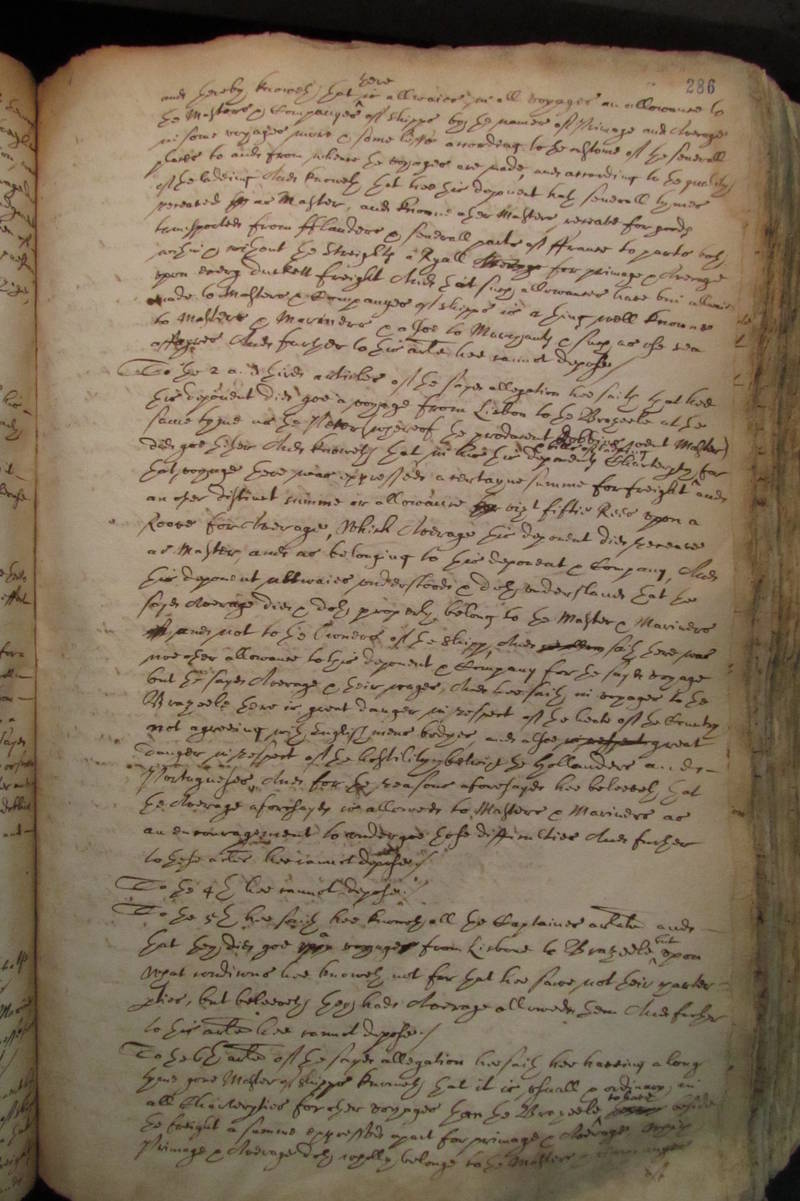 286
and hereby knoweth that there is allwaies in all voyages an allowance to
the Masters & Companyes of shipps by the names of Primage and Average
in some voyages more & some lesse according to the custome of the severall
places to and from where the voyages are made, and according to the quality
of the ladeing And knoweth that hee this deponent hath severall tymes
received as Master, and knowne other Masters receave for goods
transported from fflanders & severall parts of ffrance to parts both
within & without the Streights a Ryall for primage & Average
upon every duckett freight And that such allowances have bin allwaies
made to Masters & Companyes of shipps is a thing well knowne
to Masters & Mariners & alsoe to Marchants & such as use sea
affayres And further to this arlate hee cannot depose./
To the 2 and 3 articles of the sayd allegation hee saith that hee
this deponent did goe a voyage from Lisbon to the Brazeele at the
same tyme as the (whereof the producent went Master)
did goe thither And knoweth that in this deponents Charterparty for
that voyage there was expressed a certayne summe for freight and
an other distinct summe or allowance vizt fiftie Rees upon a
Roove for Average, Which Average this deponent did receave
as Master, and as belonging to this deponent & Company, And
this deponent allwaies understood & doth understand that the
sayd Average did & doth properly belong to the Master & Mariners
and not to the Owners of the shipp, And saith there was
noe other allowance to this deponent & Company for the sayd voyage
but the sayd Average & their wages, And hee saith in voyages to the
Brazeele there is great danger in respect of the heate of the Country
not agreeing with Englishmens bodyes, and alsoe in respect great
danger in respect of the hostility betwixt the Hollanders and
Portugueses, And for the reasons aforesayd hee beleeveth that
the Average aforesayd is allowed to Masters & Mariners as
an encouragement to undergoe those difficulties And further
to these hee cannot depose./
To the 4th hee cannot depose./
To the 5th hee saith hee knoweth all the Captaines arlate and
that they did goe a voyage from Lisbone to Brazeele but upon
what conditions hee knoweth not for that hee saw not their charter
parties, but beleeveth they had Average allowed them And further
to this hee cannot depose./
To the 6th of the sayd allegation hee saith hee having a long
tyme gone Master of shipps knoweth that it is usuall & ordinary in
all Charterparties for other voyages then the Brazeele to have beside
the freight a summe expressed apart for primage & Average
Primage & Average doth wholly belonge to the Masters